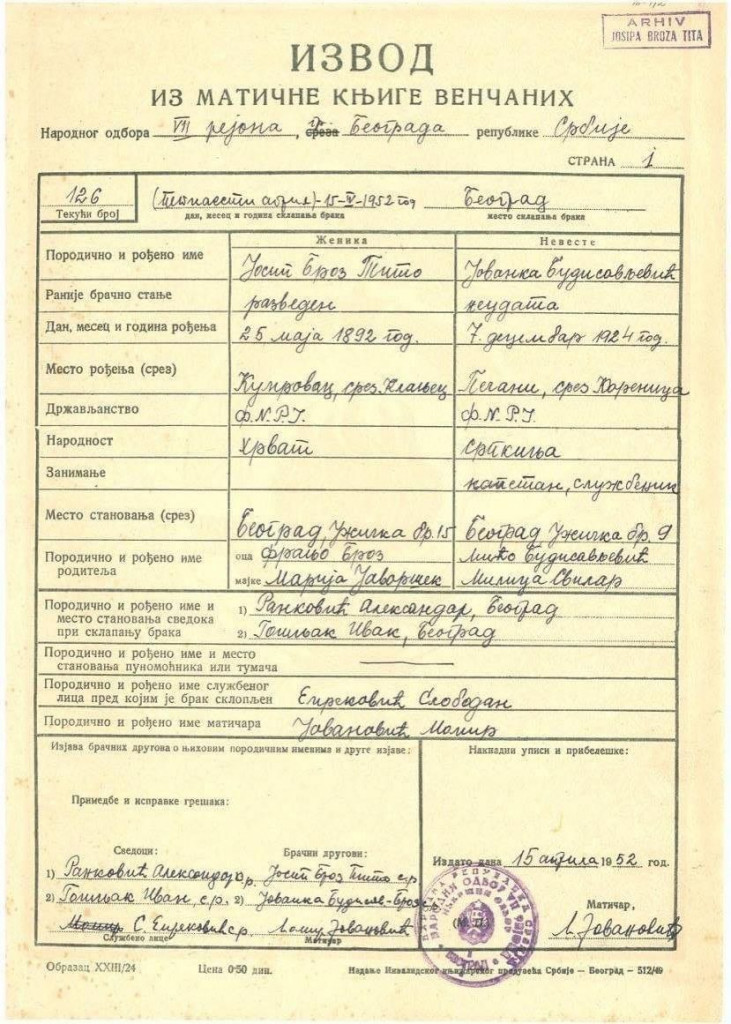 ARHIV
JOSIPA BROZA TITA
ИЗВОД
ИЗ МАТИЧНЕ КЊИГЕ ВЕНЧАНИХ
Народног одбора VII рејона, среза Београда републике Србије
СТРАНА 1
126 15-IV-1952 год Београд
Текући број дан, месец и година склапања брака место склапања брака
Женика Невесте
Породично и рођено име Јосип Броз Тито Јованка Будисављевић
Раније брачно стање разведен неудата
Дан, месец и година рођења 25 маја 1892 год. 7. децембар 1924 год.
Место рођења (срез) Купровац, срез Клањец Пећани, срез Кореница
Држављанство Ф.N.Р.Ј. Ф.N.Р.Ј.
Народност Хрват Српкиња
Занимање капетан, службеник
Место становања (срез) Београд, Ужичка бр. 15 Београд Ужичка бр. 9
Породично и рођено име оца Фрањо Броз Мићо Будисављевић
родитеља мајке Марија Јаворшек Милица Свилар
Породично и рођено име и 1) Ранковић Александар, Београд
место становања сведока
при склапању брака 2) Гошњак Иван, Београд
Породично и рођено име и место
становања пуномоћника или тумача
Породично и рођено име службеног
лица пред којим је брак склопљен Слободан
Породично и рођено име матичара Јовановић Момир
Изјава брачних другова о њиховим породичним именима и друге изјаве: Накнадни уписи и прибелешке:
Примедбе и исправке грешака:
Сведоци: Брачни другови:
Издато дана 15 априла 1952 год.
1) Ранковић Александар Јосип Броз Тито с.р.
2) Гошњак Иван, с.р. 2) Јованка Будисав-Броз
(М. П.) Матичар,
Момир С. с.р. Момир Јовановић М. Јовановић
Службено лице Матичар
Образац XXIII/24 Цена 0·50 дин. Издање Инвалидског књижарског предузећа Србије — Београд — 512/49